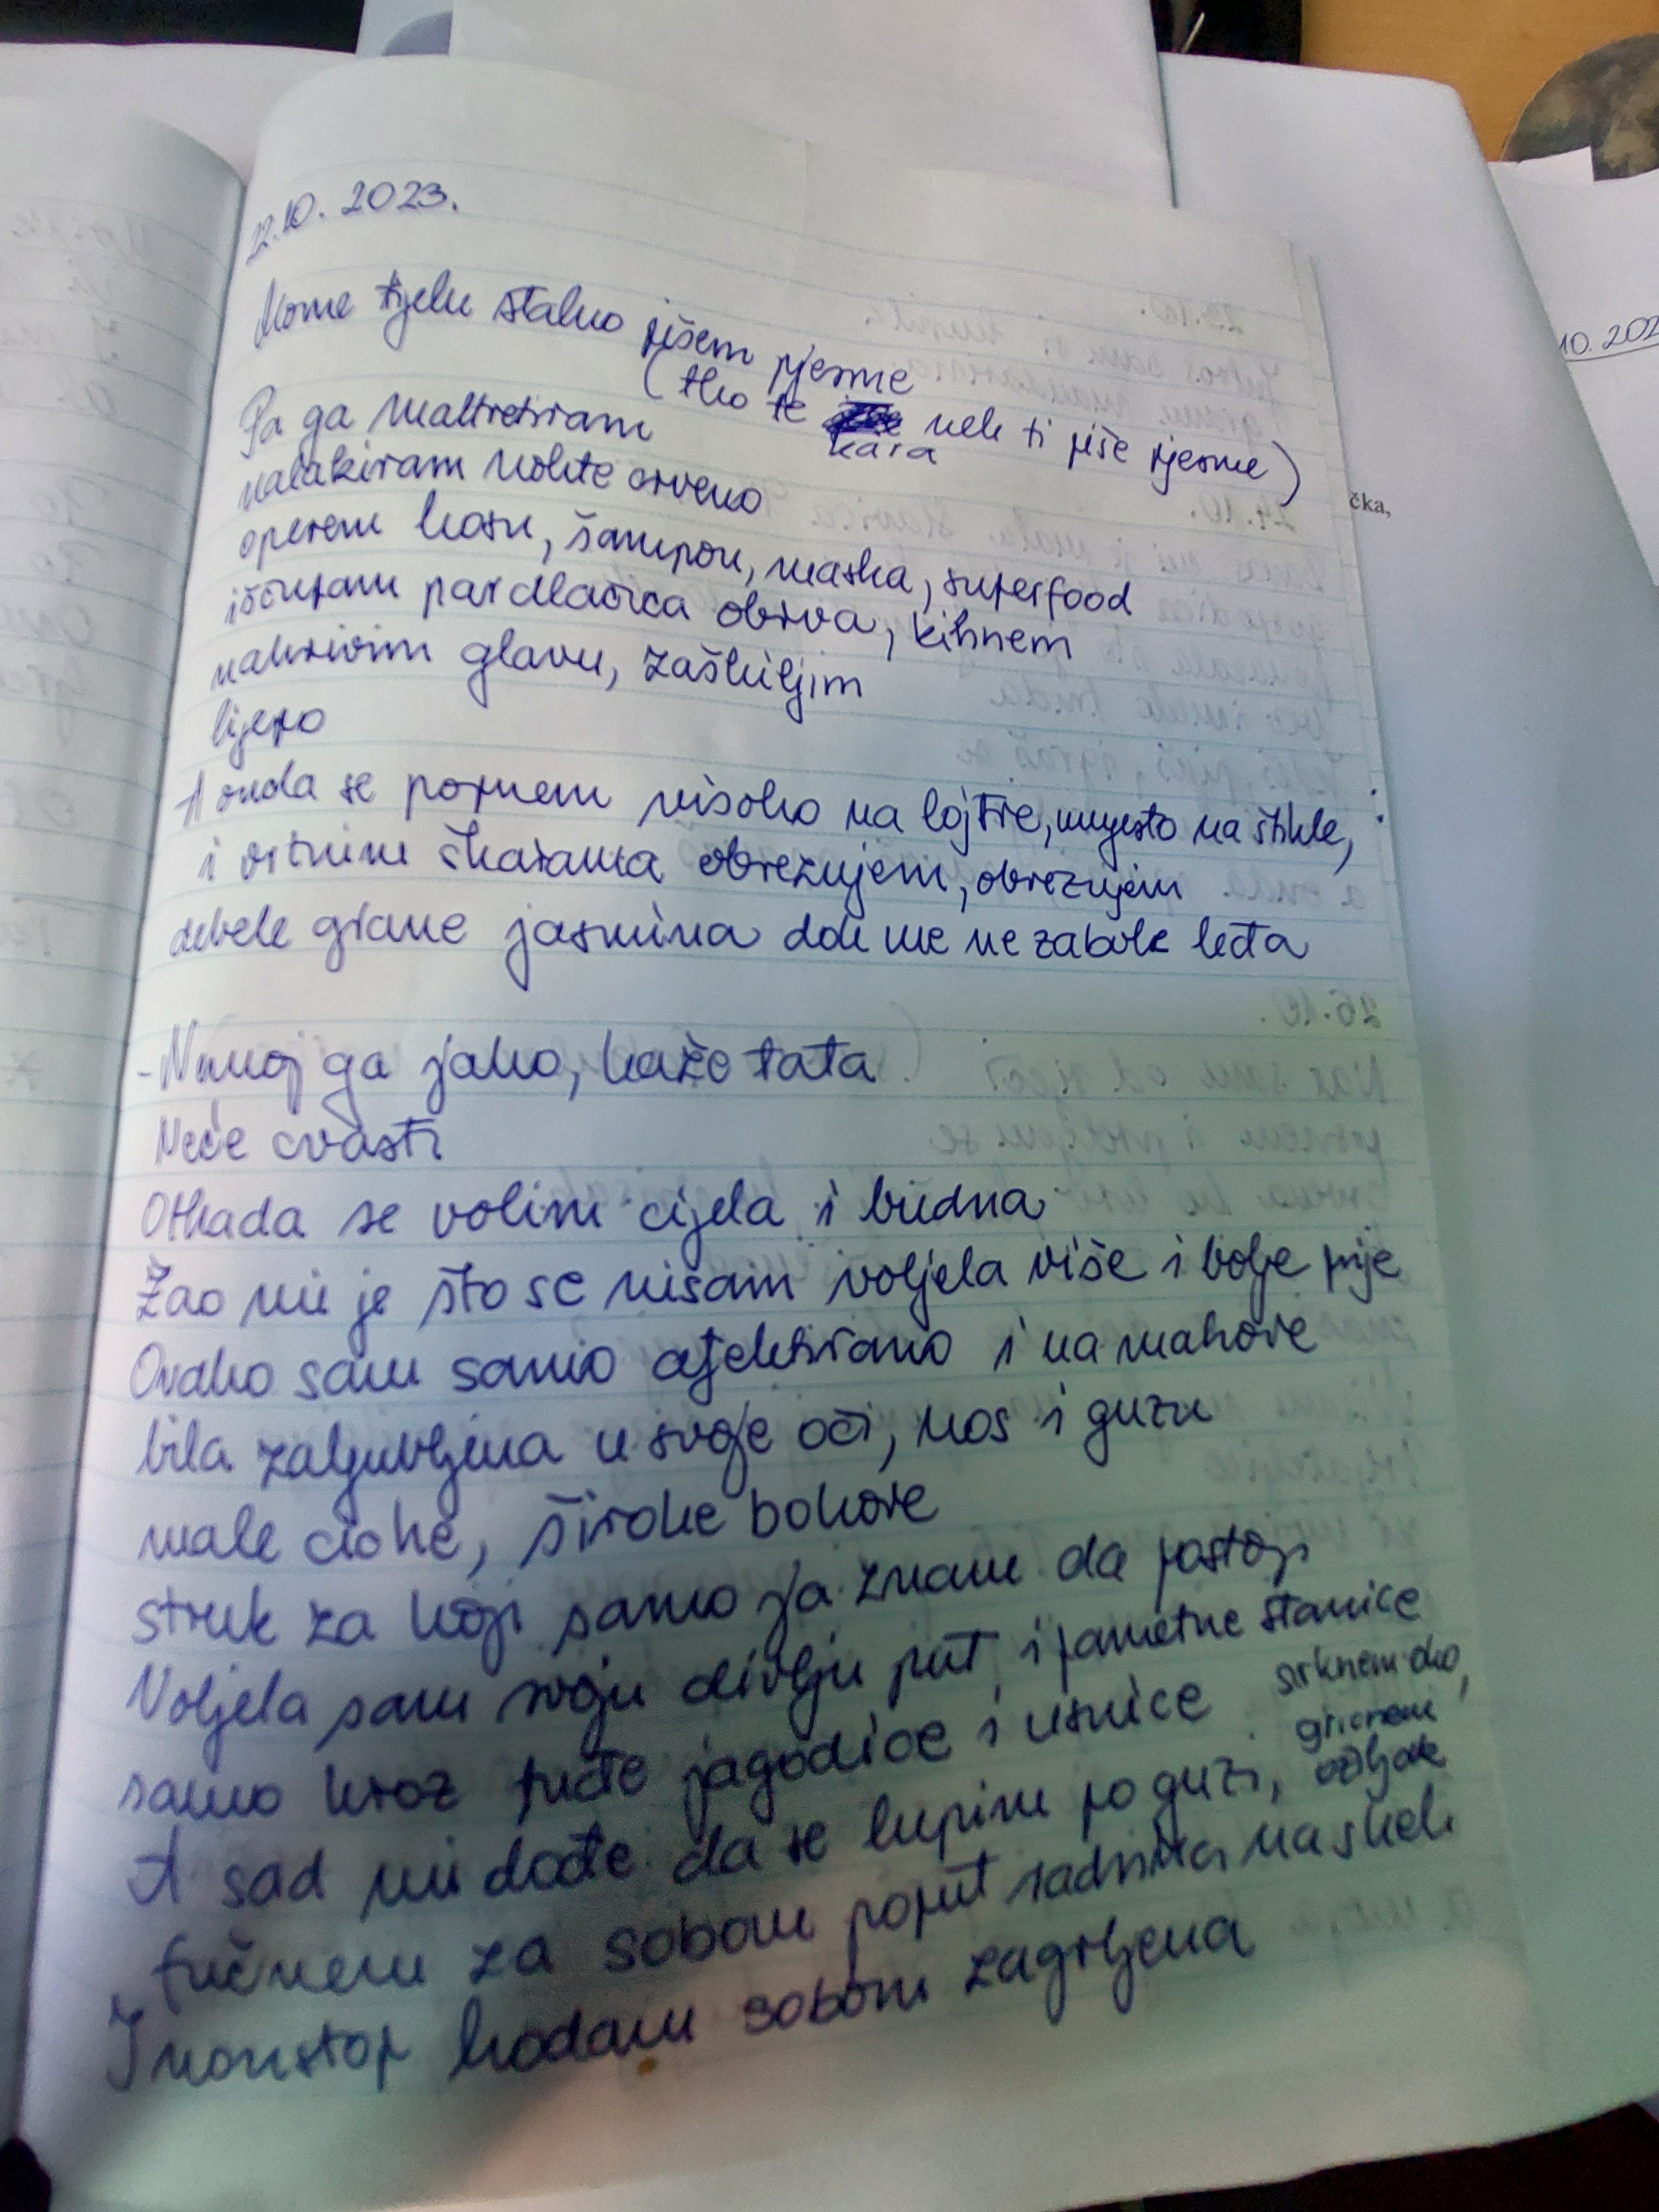 22.10.2023.
Mome tijelu stalno pišem pjesme
(tko te kara nek ti piše pjesme)
Pa ga maltretiram
nalakiram nokte crveno
operem kosu, šampon, maska, superfood
iščupam par dlačica obrva, kihnem
nakrivim glavu, zaškiljim
lijepo
A onda se popnem visoko na lojtre, umjesto na štikle,
i vrtnim škarama obrezujem, obrezujem
debele grane jasmina dok me ne zabole leđa
- Nemoj ga jako, kaže tata
Neće cvasti
Otkada se volim cijela i budna
Žao mi je što se nisam voljela više i bolje prije
Ovako sam samo afektirano i na mahove
bila zaljubljena u svoje oči, nos i guzu
male cicke, široke bokove
struk za koji samo ja znam da postoji
Voljela sam svoju divlju put i pametne stanice
samo kroz tuđe jagodice i usnice
A sad mi dođe da se lupim po guzi, srknem oko, gricnem ožiljak
fućnem za sobom poput radnika na skeli
I nonstop hodam sobom zagrljena
čka,
10. 202